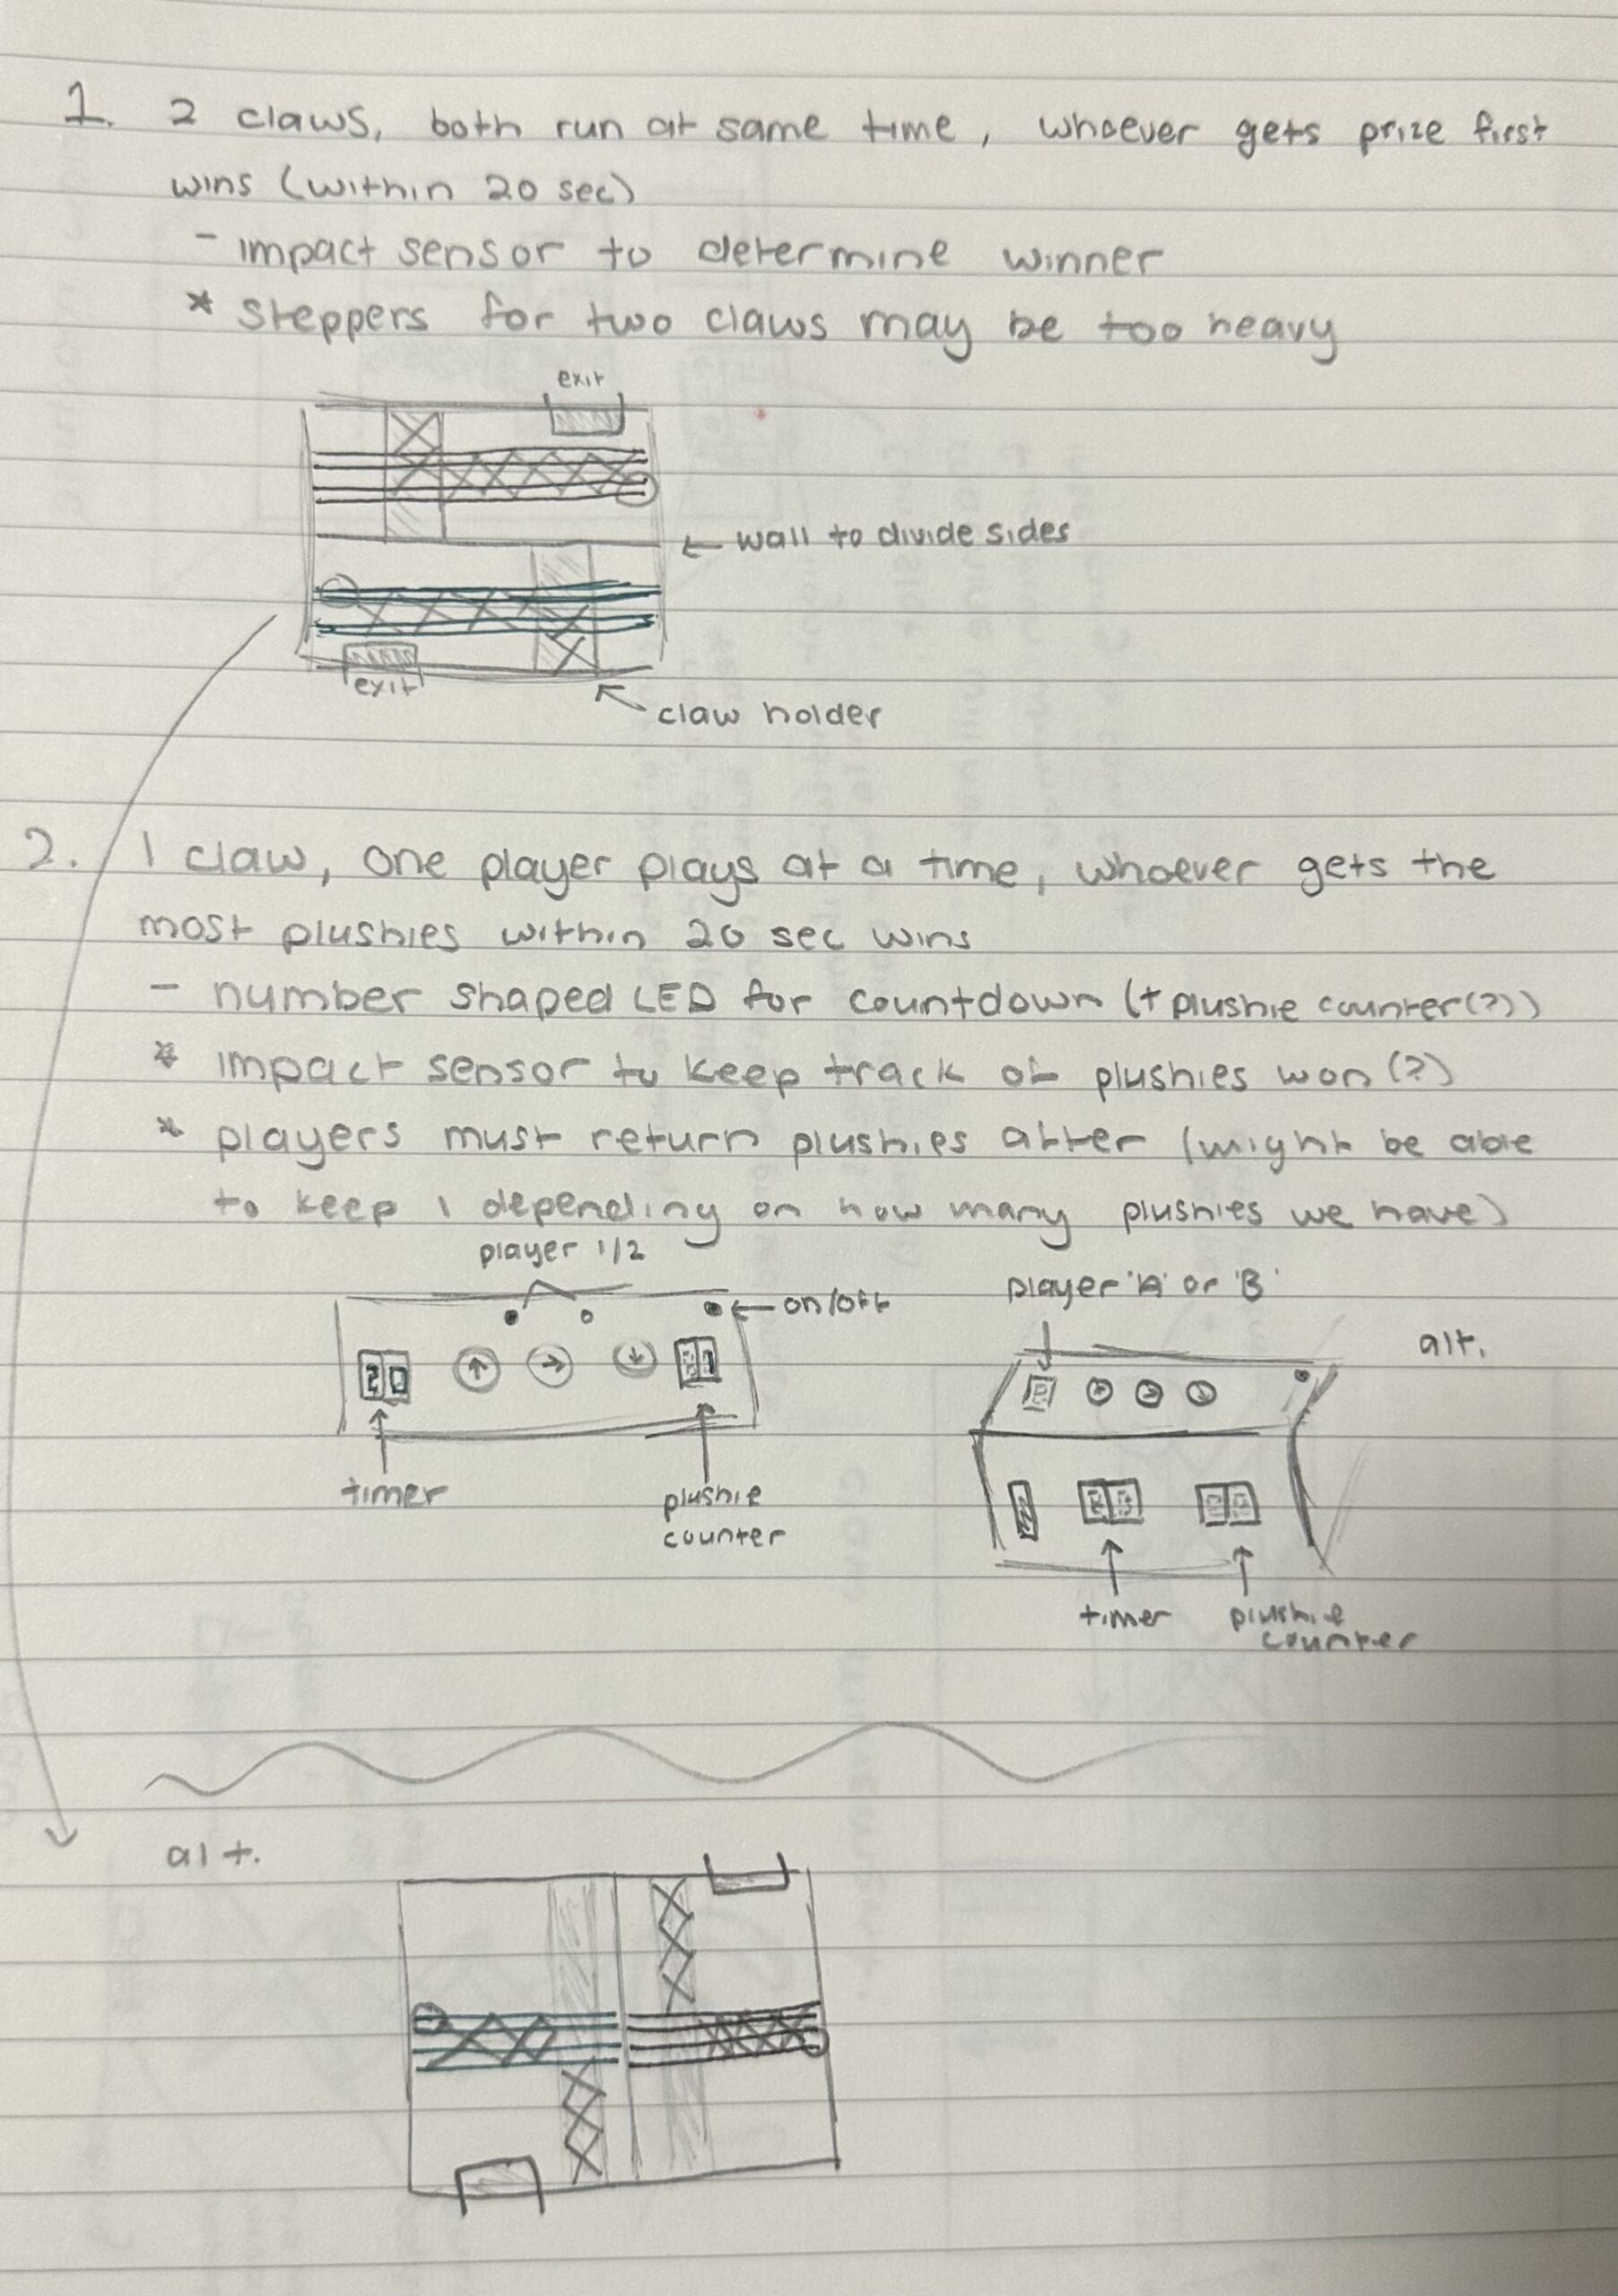 1. 2 claws, both run at same time, whoever gets prize first
wins (within 20 sec)
- impact sensor to determine winner
* steppers for two claws may be too heavy
exit
← wall to divide sides
exit
claw holder
2. 1 claw, one player plays at a time, whoever gets the
most plushies within 20 sec wins
- number shaped LED for countdown (+ plushie counter(?))
* impact sensor to keep track of plushies won (?)
* players must return plushies after (might be able
to keep 1 depending on how many plushies we have)
player 1/2
← on/off
20 ↑ → ↓
timer
plushie
counter
player 'A' or 'B'
alt.
timer
plushie
counter
alt.